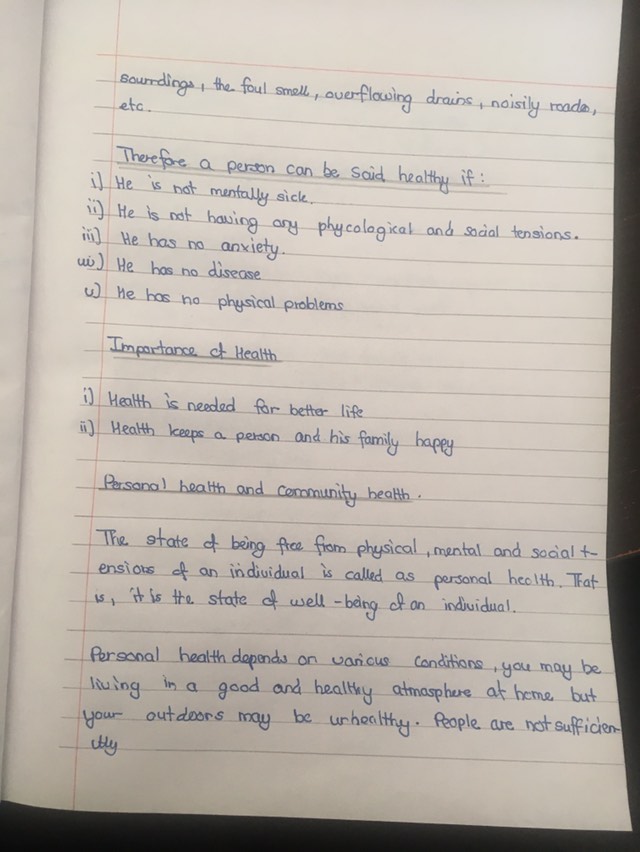 sourrdings, the foul smell, overflowing drains, noisily roads,
etc.
Therefore a person can be said healthy if:
i) He is not mentally sick.
ii) He is not having any phycological and social tensions.
iii) He has no anxiety.
iv) He has no disease
v) He has no physical problems
Importance of Health
i) Health is needed for better life
ii) Health keeps a person and his family happy
Personal health and community health.
The state of being free from physical, mental and social t-
ensions of an individual is called as personal health. That
is, it is the state of well-being of an individual.
Personal health depends on various conditions, you may be
living in a good and healthy atmosphere at home but
your outdoors may be unhealthy. People are not sufficien-
tly